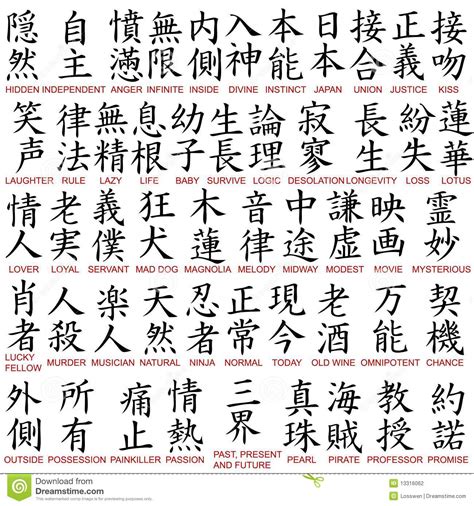 隠 自 憤 無 内 入 本 日 接 正 接
然 主 懣 限 側 神 能 本 合 義 吻
HIDDEN INDEPENDENT ANGER INFINITE INSIDE DIVINE INSTINCT JAPAN UNION JUSTICE KISS
笑 律 無 息 幼 生 論 寂 長 紛 蓮
声 法 精 根 子 長 理 寥 生 失 華
LAUGHTER RULE LAZY LIFE BABY SURVIVE LOGIC DESOLATION LONGEVITY LOSS LOTUS
情 老 義 狂 木 音 中 謙 映 霊
人 実 僕 犬 蓮 律 途 虚 画 妙
LOVER LOYAL SERVANT MAD DOG MAGNOLIA MELODY MIDWAY MODEST MOVIE MYSTERIOUS
肖 人 楽 天 忍 正 現 老 万 契
者 殺 人 然 者 常 今 酒 能 機
LUCKY FELLOW MURDER MUSICIAN NATURAL NINJA NORMAL TODAY OLD WINE OMNIPOTENT CHANCE
外 所 痛 情 三 真 海 教 約
側 有 止 熱 界 珠 賊 授 諾
OUTSIDE POSSESSION PAINKILLER PASSION PAST, PRESENT AND FUTURE PEARL PIRATE PROFESSOR PROMISE
Download from
Dreamstime.com
This watermarked comp image is for previewing purposes only.
13316062
Losswen | Dreamstime.com